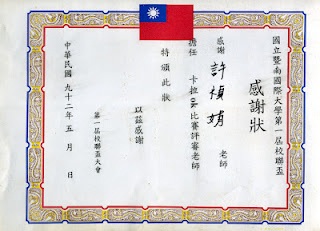 國立暨南國際大學第一屆校聯盃
感謝狀
感謝 許楨婧 老師
擔任 卡拉OK 比賽評審老師
特頒此狀
以茲感謝
第一屆校聯盃大會
中華民國 九十二年 五 月 日